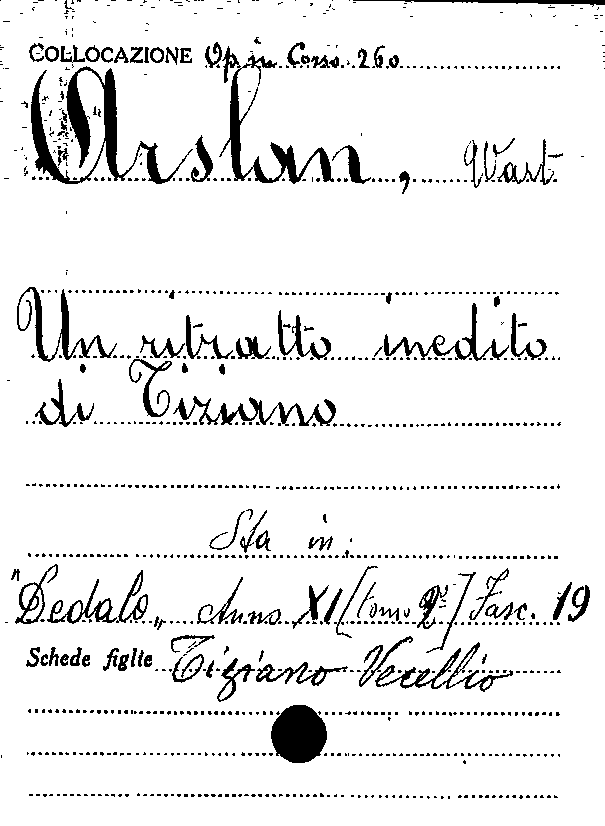 COLLOCAZIONE Op in Corso 260
Arslan, Wart
Un ritratto inedito
di Tiziano
Sta in:
"Dedalo„ Anno XI [tomo 2º] Fasc. 19
Schede figlie Tiziano Vecellio